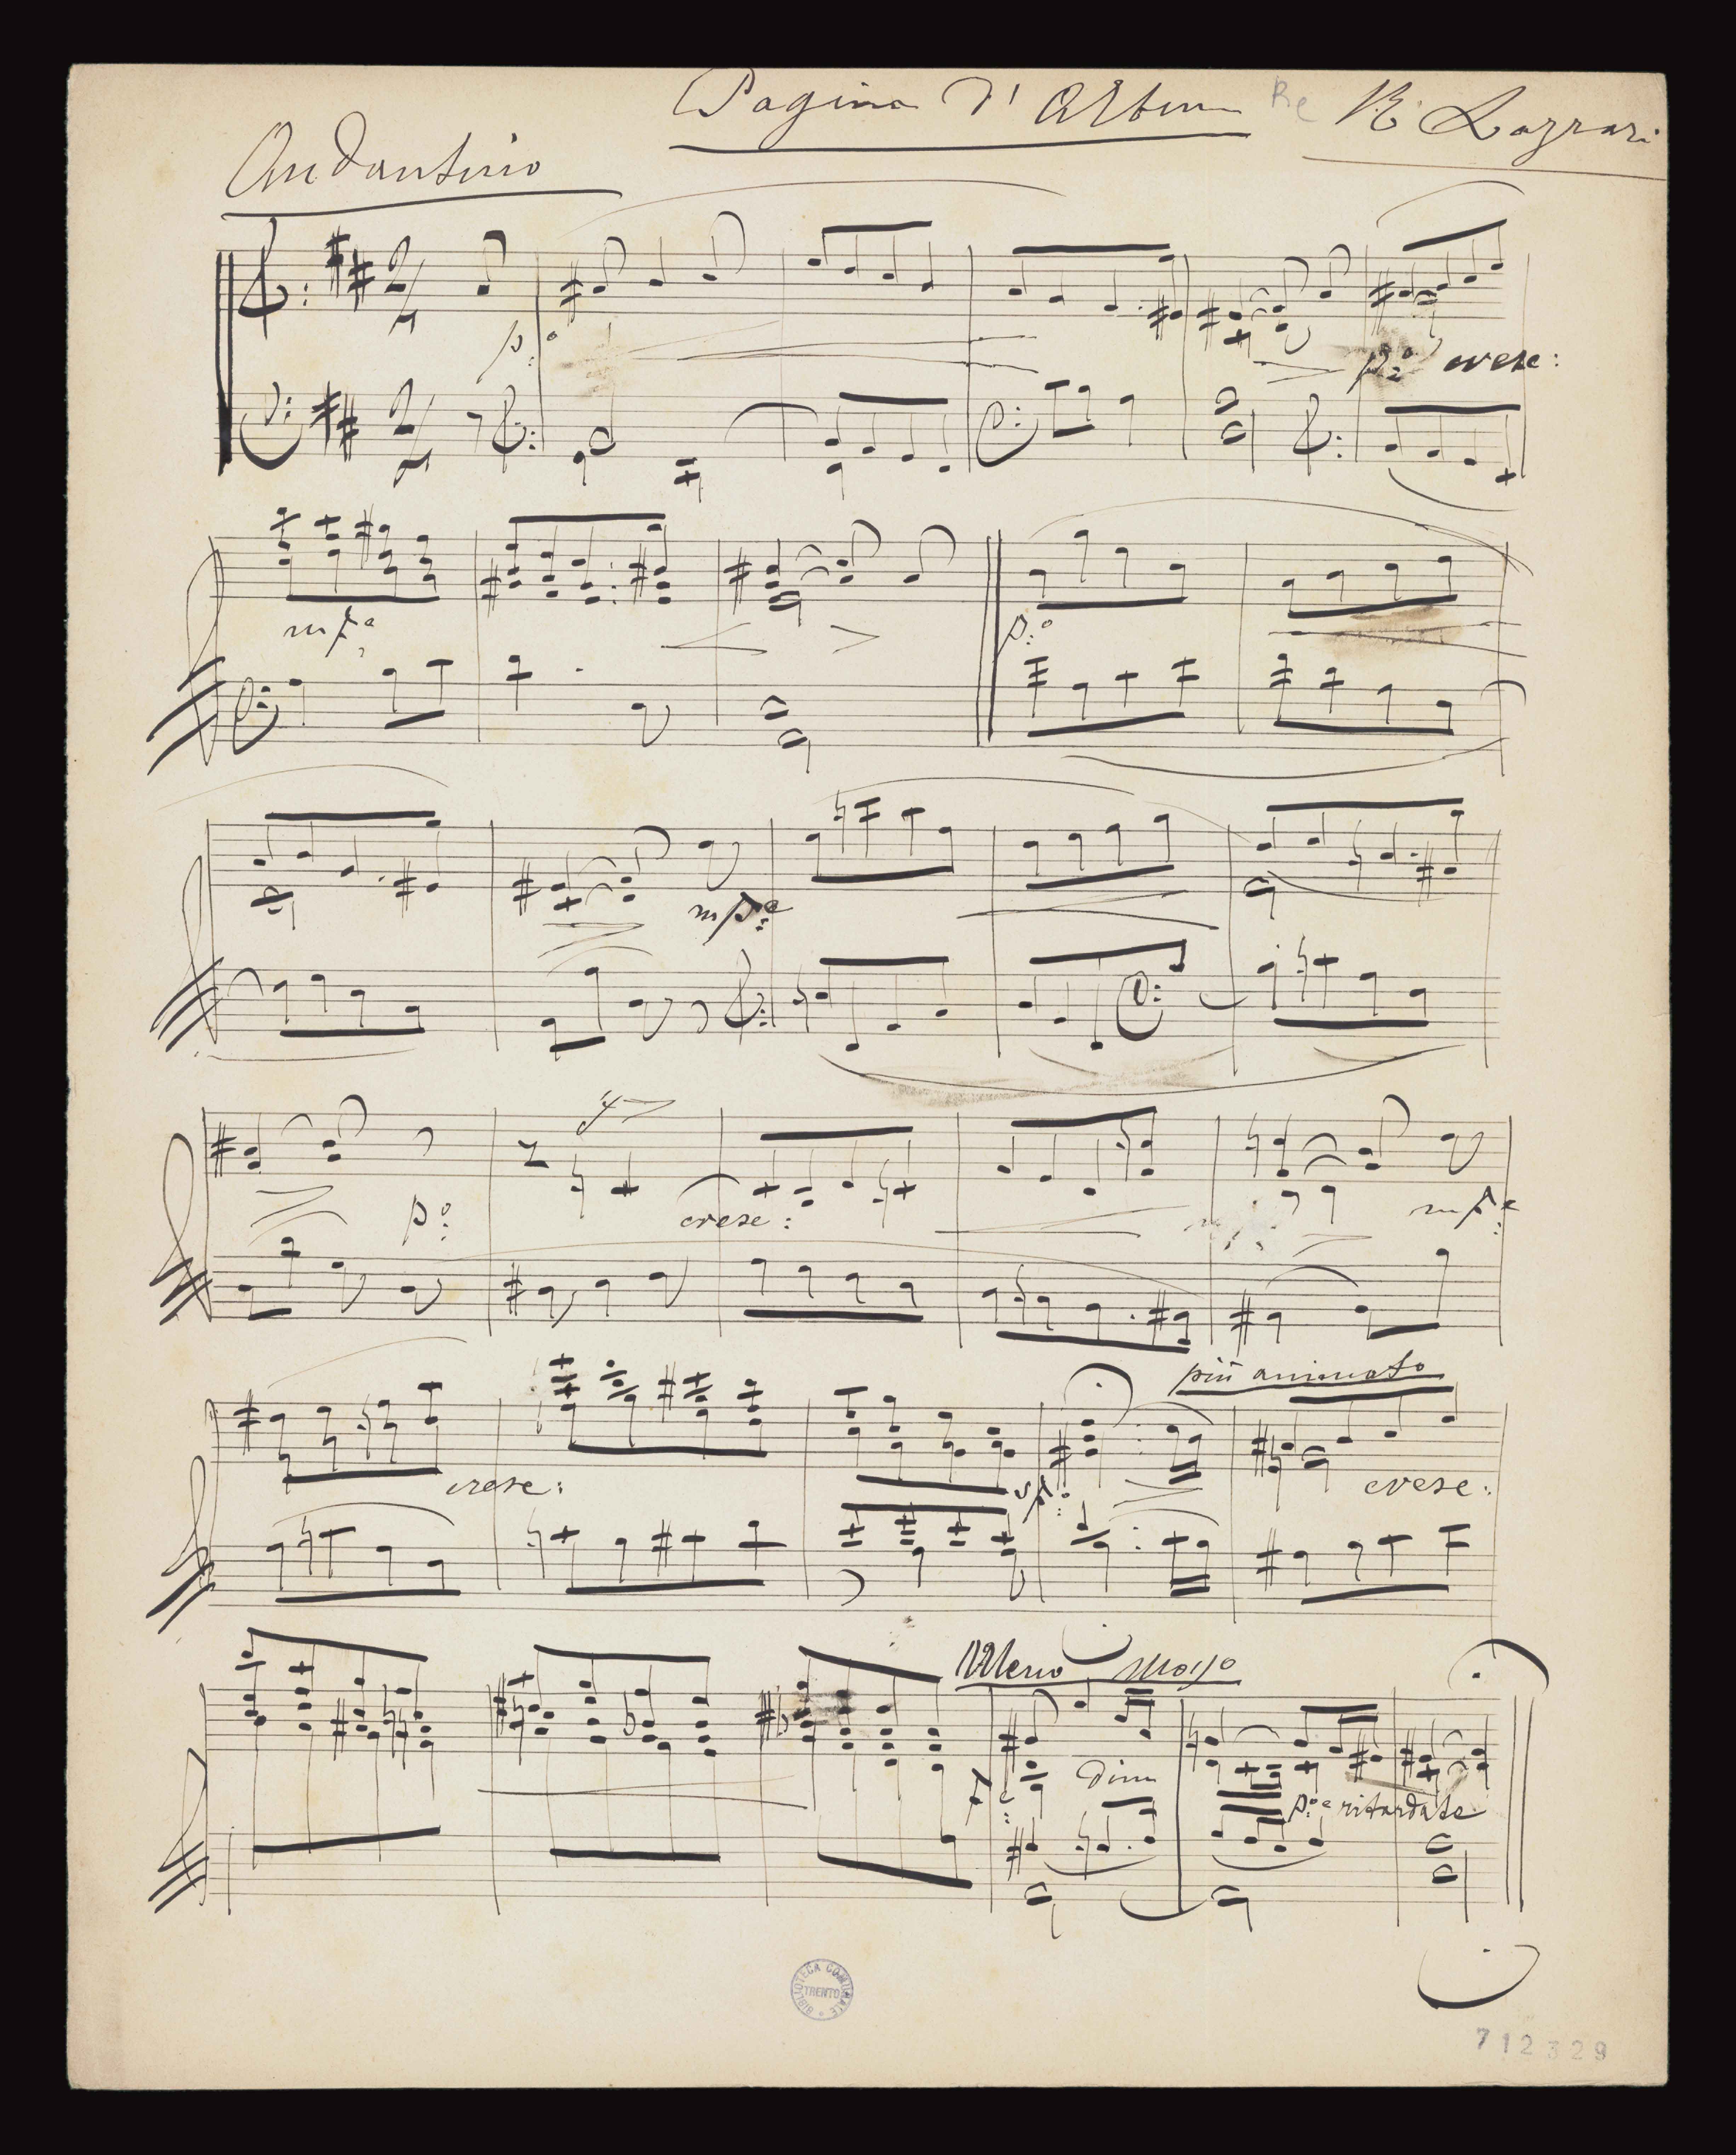 Pagina d'Album Re R Lazzari
Andantino
2/4
p:o
p:o cresc:
2/4
mfe
p:o
mp:e
f
po:
cresc:
mf:e
più animato
cresc:
sf:o
cresc:
Meno mosso
f
Dim
p:o e ritardate
BIBLIOTECA COMUNALE
TRENTO
712329